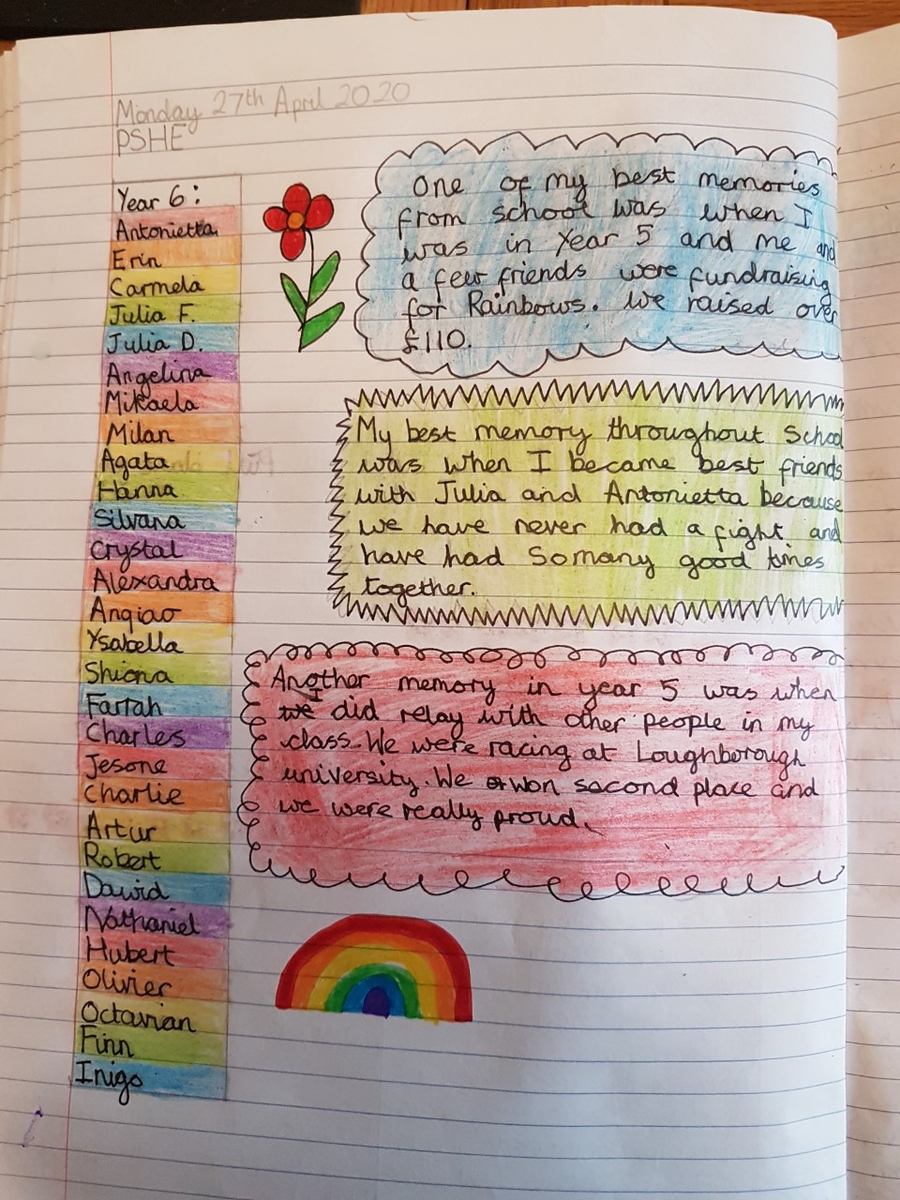 Monday 27th April 2020
PSHE
Year 6:
Antonietta
Erin
Carmela
Julia F.
Julia D.
Angelina
Mikaela
Milan
Agata
Hanna
Silvana
Crystal
Alexandra
Angiao
Ysabella
Shiona
Farrah
Charles
Jesone
Charlie
Artur
Robert
Dawid
Nathaniel
Hubert
Olivier
Octavian
Finn
Inigo
One of my best memories
from school was when I
was in Year 5 and me and
a few friends were fundraising
for Rainbows. We raised over
£110.
My best memory throughout School
was when I became best friends
with Julia and Antonietta because
we have never had a fight and
have had So many good times
together.
Another memory in year 5 was when
I
we did relay with other people in my
class. We were racing at Loughborough
university. We won second place and
we were really proud.